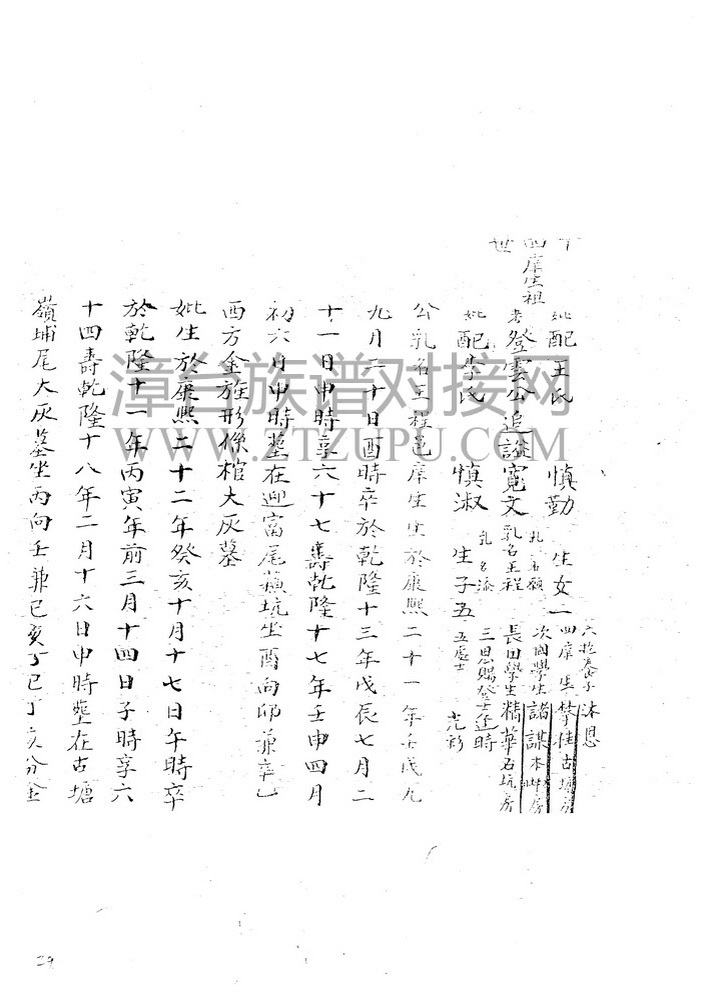 十四世
庠生祖
妣配王氏 慎勤 乳名願 生女一
考登雲公追謚寬文 乳名玉程
妣配李氏 慎淑 乳名 生子五
六抱養子沐恩
四庠生 攀桂古塘房
次國學生諸謀本 房
長田學生精華石坑房
三恩賜登士 時
五處士 光彩
公乳名玉程邑庠生生於康熙二十一年壬戌九
九月二十日酉時卒於乾隆十三年戊辰七月二
十一日申時享六十七壽乾隆十七年壬申四月
初六日申時塟在迎富尾 坑坐酉向卯兼辛乙
西方金 形係棺大灰墓
妣生於康熙二十二年癸亥十月十七日午時卒
於乾隆十一年丙寅年前三月十四日子時享六
十四壽乾隆十八年二月十六日申時塟在古塘
嶺埔尾大灰墓坐丙向壬兼巳亥丁巳丁亥分金
29
漳台族谱对接网
WWW.ZTZUPU.COM